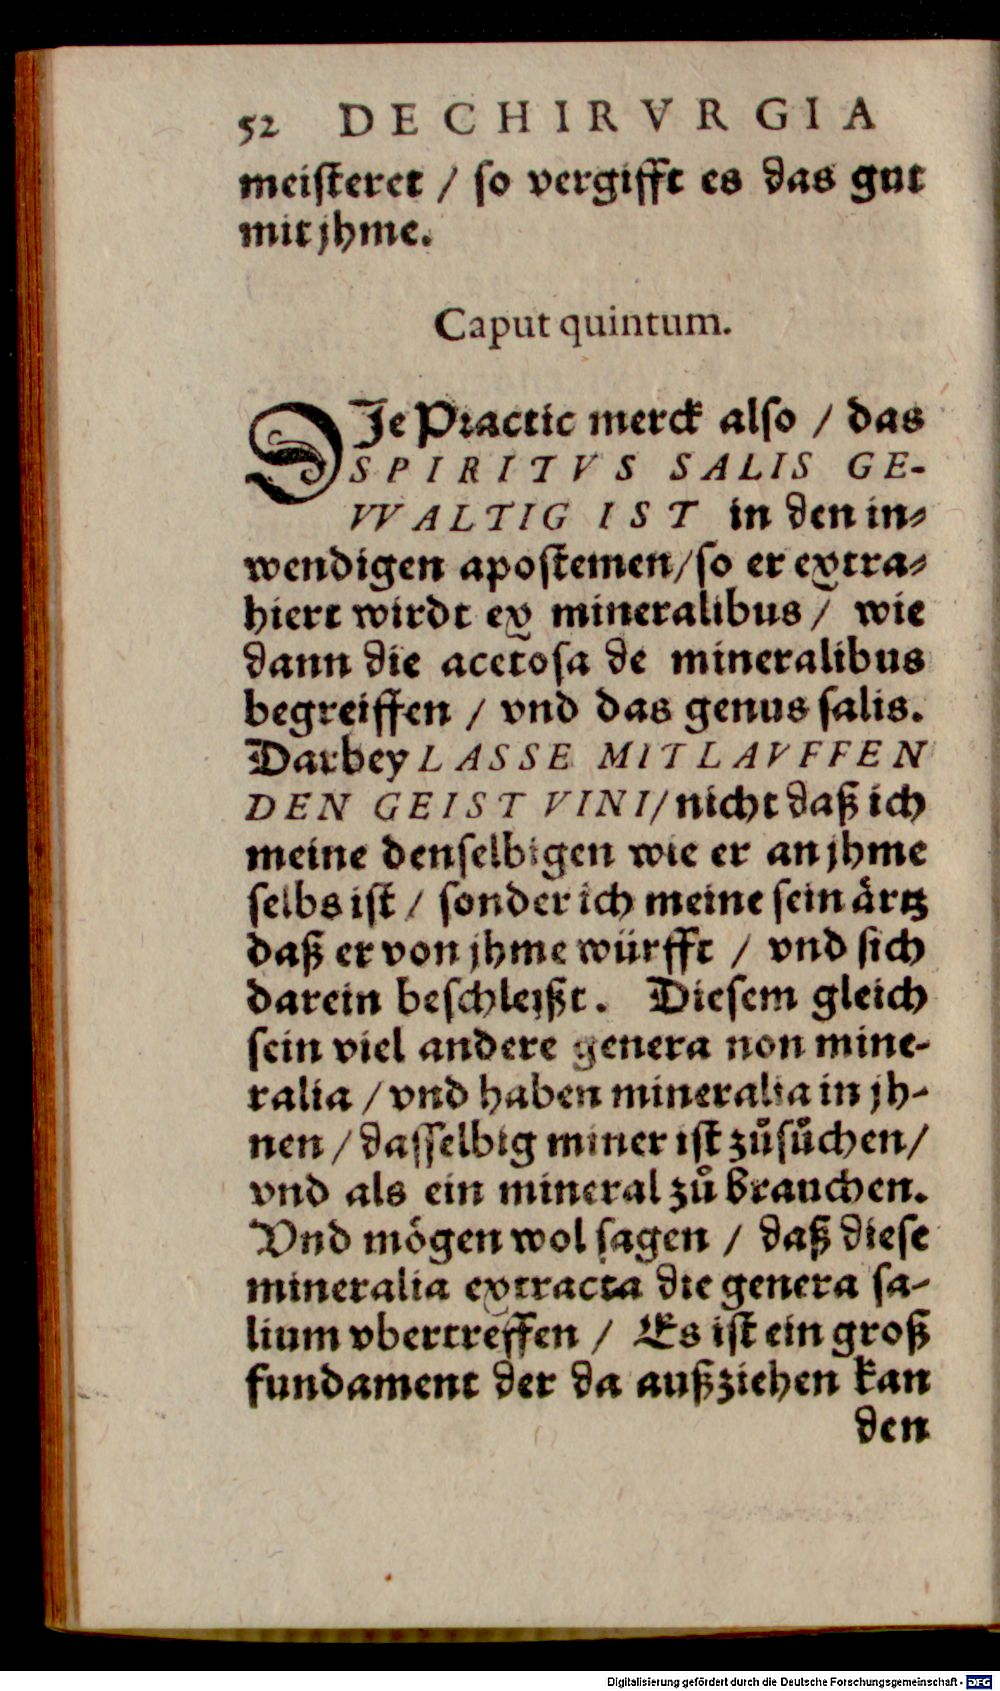 52 DE CHIRVRGIA
meisteret / so vergifft es das gut
mit jhme.
Caput quintum.
DJe Practic merck also / das
SPIRITVS SALIS GE-
VVALTIG IST in den in-
wendigen apostemen/so er extra-
hiert wirdt ex mineralibus / wie
dann die acetosa de mineralibus
begreiffen / vnd das genus salis.
Darbey LASSE MITLAVFFEN
DEN GEIST VINI/nicht daß ich
meine denselbigen wie er an jhme
selbs ist / sonder ich meine sein ärtz
daß er von jhme würfft / vnd sich
darein beschleißt. Diesem gleich
sein viel andere genera non mine-
ralia / vnd haben mineralia in jh-
nen / dasselbig miner ist zůsůchen/
vnd als ein mineral zů brauchen.
Vnd mögen wol sagen / daß diese
mineralia extracta die genera sa-
lium vbertreffen / Es ist ein groß
fundament der da außziehen kan
den
Digitalisierung gefördert durch die Deutsche Forschungsgemeinschaft - DFG